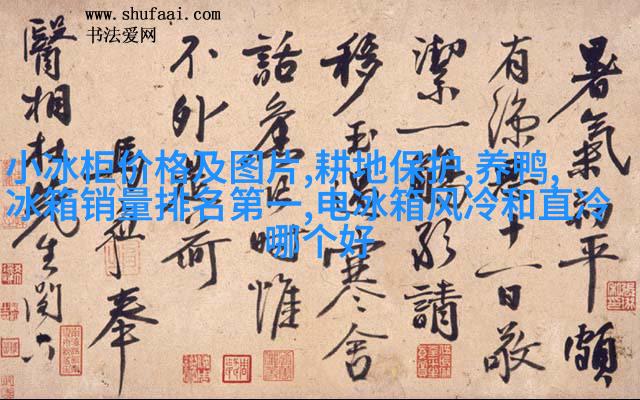 www.shufaai.com
书法爱网
小冰柜价格及图片,耕地保护,养鸭,
冰箱销量排名第一,电冰箱风冷和直冷
哪个好
暑氣初平頗
有涼十一日敬
潔一觴請
移玉寒舍
話舊惟
不外荷
馬奉
醫相杜先生閣下